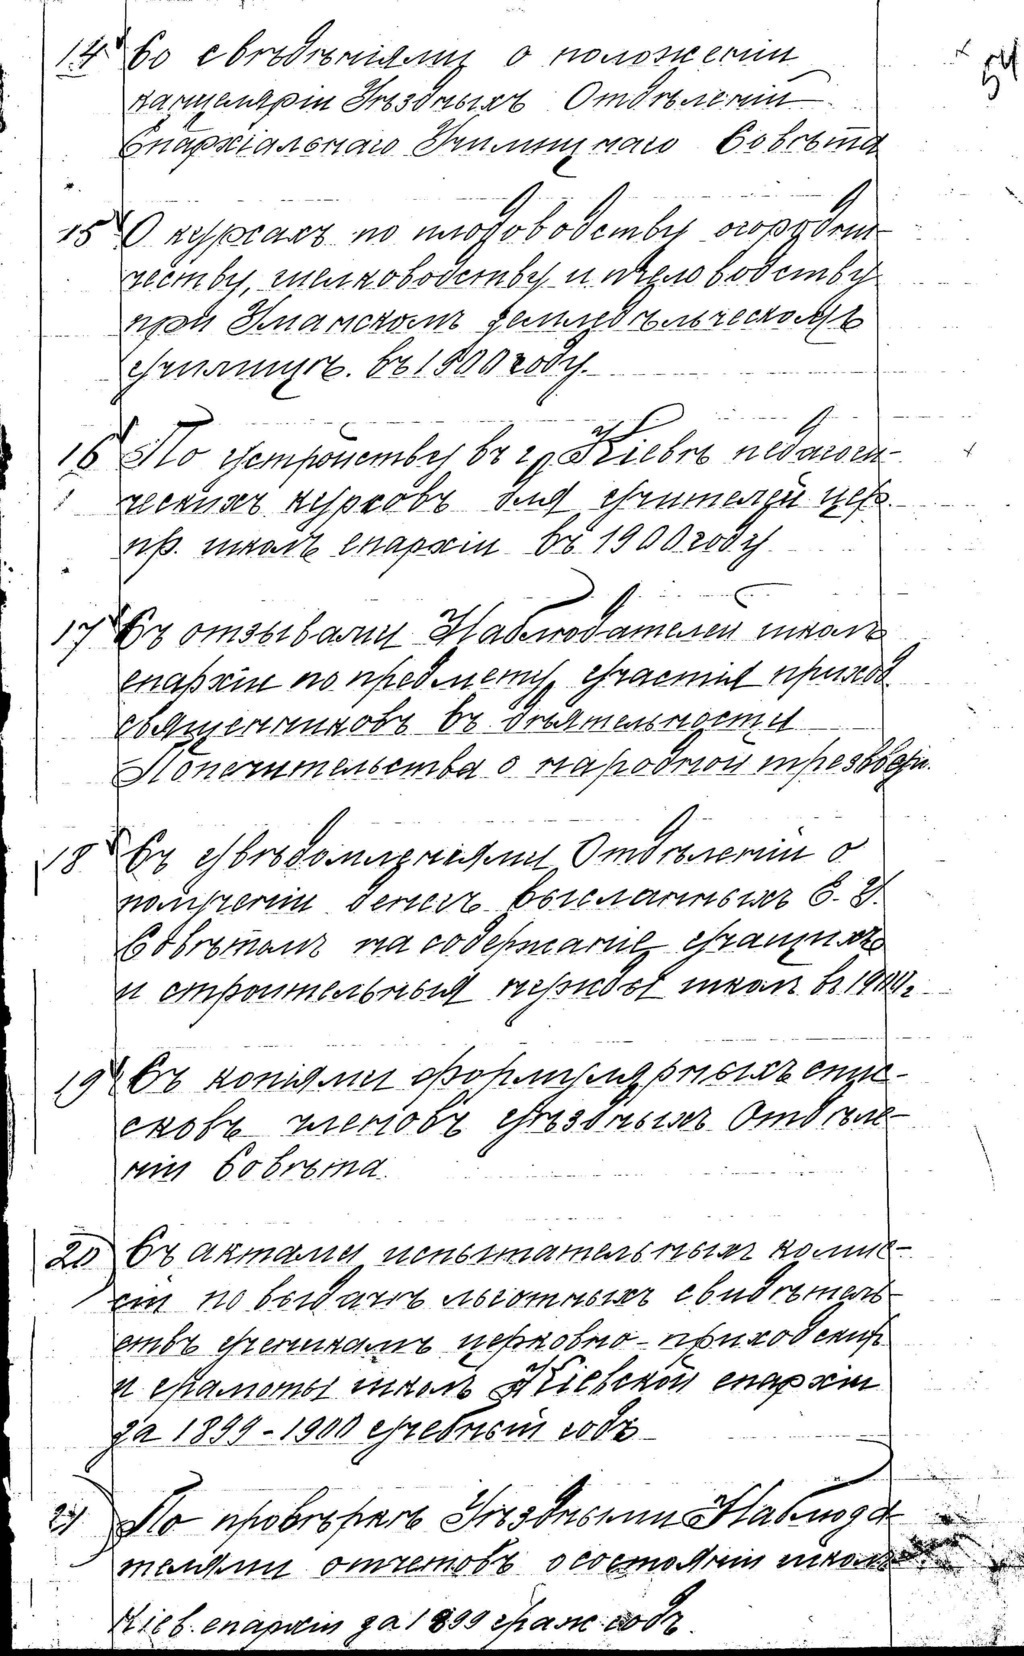 54
14 Со свѣдѣніями о положеніи
канцеляріи Уѣздныхъ Отдѣленій
Епархіальнаго Училищнаго Совѣта
15 О курсахъ по плодоводству огородни-
честву, шелководству и пчеловодству
при Уманскомъ земледѣльческомъ
училищѣ. въ 1900 году.
16 По устройству въ г. Кіевѣ педагоги-
ческихъ курсовъ для учителей цер.
пр. школъ епархіи въ 1900 году
17 Съ отзывами Наблюдателей школъ
епархіи по предмету участія приход.
священниковъ въ дѣятельности
Попечительства о народной трезвости.
18 Съ увѣдомленіями Отдѣленій о
полученіи денегъ высланныхъ Е. У.
Совѣтомъ на содержаніе учащихъ
и строительныя нужды школъ въ 1900 г.
19 Съ копіями формулярныхъ спис-
сковъ членовъ уѣздныхъ Отдѣле-
ній Совѣта.
20) Съ актами испытательныхъ комис-
сій по выдачѣ льготныхъ свидѣтель-
ствъ ученикамъ церковно-приходскихъ
и грамоты школъ Кіевской епархіи
за 1899-1900 учебный годъ
21) По провѣркѣ Уѣздными Наблюда-
телями отчетовъ о состояніи школъ
Кіев. епархіи за 1899 граж. годъ.